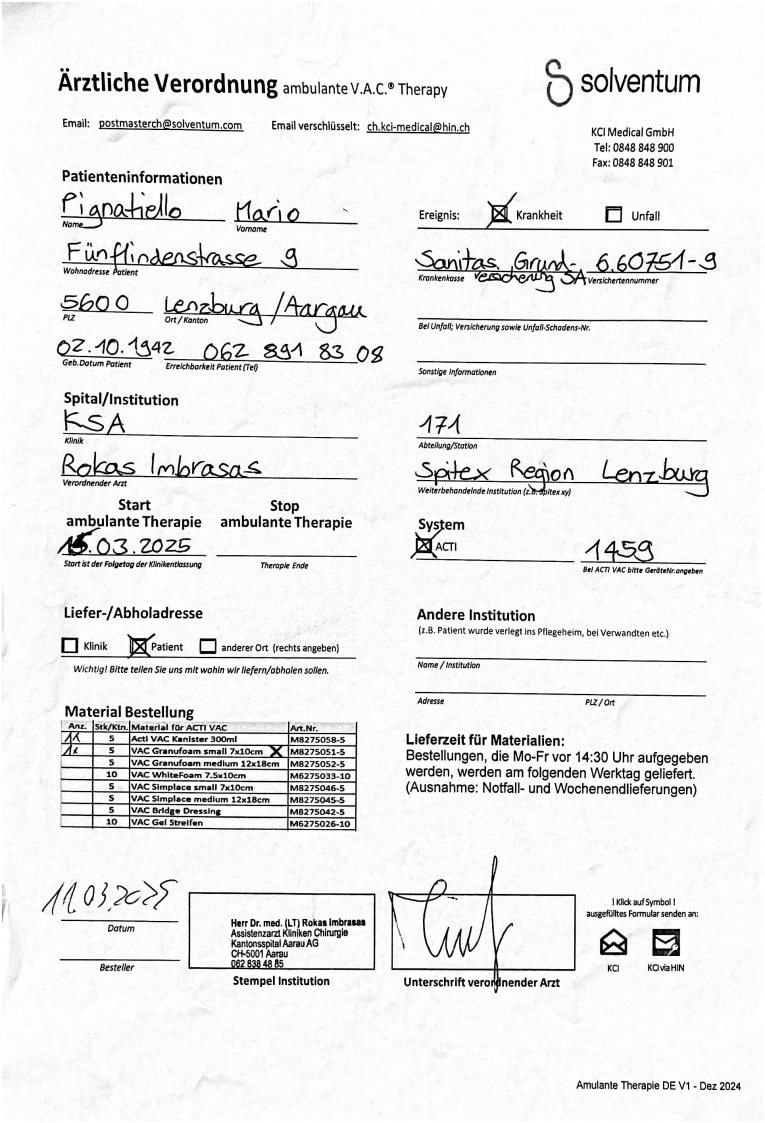 Ärztliche Verordnung ambulante V.A.C.® Therapy
solventum
Email: postmasterch@solventum.com Email verschlüsselt: ch.kci-medical@hin.ch
KCI Medical GmbH
Tel: 0848 848 900
Fax: 0848 848 901
Patienteninformationen
Pignatiello Mario
Name Vorname
Fünflindenstrasse 9
Wohnadresse Patient
5600 Lenzburg / Aargau
PLZ Ort / Kanton
02.10.1942 062 891 83 08
Geb.Datum Patient Erreichbarkeit Patient (Tel)
Ereignis: Krankheit Unfall
Sanitas Grund- 6.60751-9
versicherung SA
Krankenkasse Versichertennummer
Bei Unfall; Versicherung sowie Unfall-Schadens-Nr.
Sonstige Informationen
Spital/Institution
KSA
Klinik
Rokas Imbrasas
Verordnender Arzt
171
Abteilung/Station
Spitex Region Lenzburg
Weiterbehandelnde Institution (z.B. Spitex xy)
Start Stop
ambulante Therapie ambulante Therapie
15.03.2025
Start ist der Folgetag der Klinikentlassung Therapie Ende
System
ACTI 1459
Bei ACTI VAC bitte GeräteNr.angeben
Liefer-/Abholadresse
Klinik Patient anderer Ort (rechts angeben)
Wichtig! Bitte teilen Sie uns mit wohin wir liefern/abholen sollen.
Andere Institution
(z.B. Patient wurde verlegt ins Pflegeheim, bei Verwandten etc.)
Name / Institution
Adresse PLZ / Ort
Material Bestellung
Anz. Stk/Ktn. Material für ACTI VAC Art.Nr.
1x 5 Acti VAC Kanister 300ml M8275058-5
1x 5 VAC Granufoam small 7x10cm X M8275051-5
5 VAC Granufoam medium 12x18cm M8275052-5
10 VAC WhiteFoam 7.5x10cm M6275033-10
5 VAC Simplace small 7x10cm M8275046-5
5 VAC Simplace medium 12x18cm M8275045-5
5 VAC Bridge Dressing M8275042-5
10 VAC Gel Streifen M6275026-10
Lieferzeit für Materialien:
Bestellungen, die Mo-Fr vor 14:30 Uhr aufgegeben
werden, werden am folgenden Werktag geliefert.
(Ausnahme: Notfall- und Wochenendlieferungen)
11.03.2025
Datum
Besteller
Herr Dr. med. (LT) Rokas Imbrasas
Assistenzarzt Kliniken Chirurgie
Kantonsspital Aarau AG
CH-5001 Aarau
062 838 48 85
Stempel Institution
Unterschrift verordnender Arzt
! Klick auf Symbol !
ausgefülltes Formular senden an:
KCI KCI via HIN
Amulante Therapie DE V1 - Dez 2024